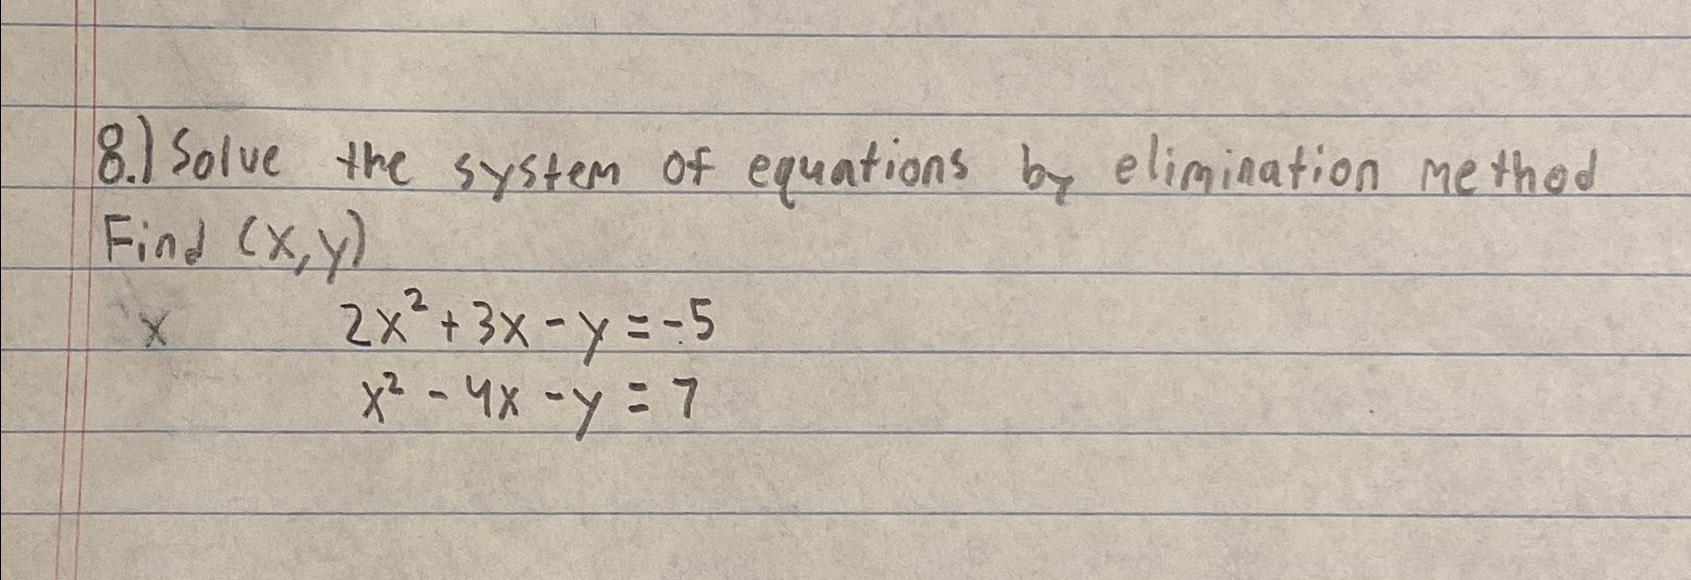 8.) Solve the system of equations by elimination method
Find (x,y)
x 2x² + 3x - y = -5
x² - 4x - y = 7